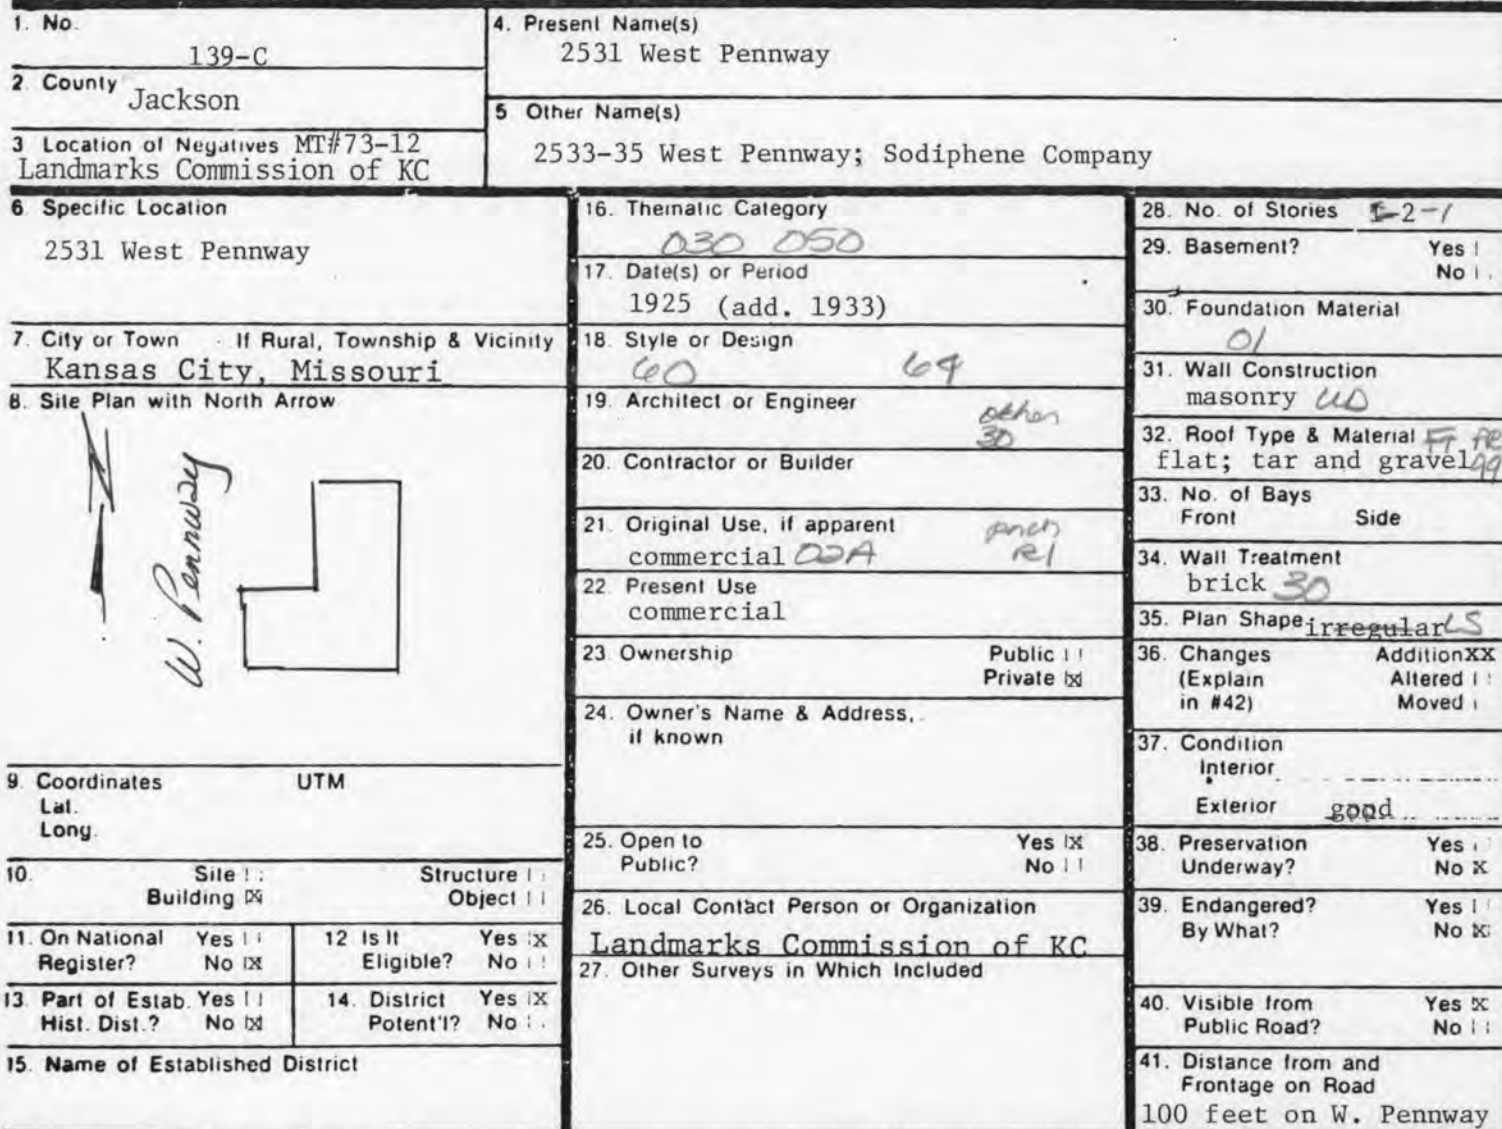 1. No.
139-C
2. County Jackson
3 Location of Negatives MT#73-12
Landmarks Commission of KC
4. Present Name(s)
2531 West Pennway
5 Other Name(s)
2533-35 West Pennway; Sodiphene Company
6. Specific Location
2531 West Pennway
7. City or Town If Rural, Township & Vicinity
Kansas City, Missouri
8. Site Plan with North Arrow
N
W. Pennway
9. Coordinates UTM
Lat.
Long.
10. Site Structure
Building X Object
11. On National Yes
Register? No X
12 Is It Yes X
Eligible? No
13. Part of Estab. Yes
Hist. Dist.? No X
14. District Yes X
Potent'l? No
15. Name of Established District
16. Thematic Category
030 050
17. Date(s) or Period
1925 (add. 1933)
18. Style or Design
60 64
19. Architect or Engineer
other
30
20. Contractor or Builder
21. Original Use, if apparent
commercial 02A
22. Present Use
commercial
23 Ownership Public
Private X
24. Owner's Name & Address,
if known
25. Open to Yes X
Public? No
26. Local Contact Person or Organization
Landmarks Commission of KC
27. Other Surveys in Which Included
28. No. of Stories 2-1
29. Basement? Yes
No
30. Foundation Material
01
31. Wall Construction
masonry
32. Roof Type & Material FT
flat; tar and gravel 99
33. No. of Bays
Front Side
34. Wall Treatment
brick 30
35. Plan Shape irregular LS
36. Changes Addition XX
(Explain Altered
in #42) Moved
37. Condition
Interior
Exterior good
38. Preservation Yes
Underway? No X
39. Endangered? Yes
By What? No X
40. Visible from Yes X
Public Road? No
41. Distance from and
Frontage on Road
100 feet on W. Pennway